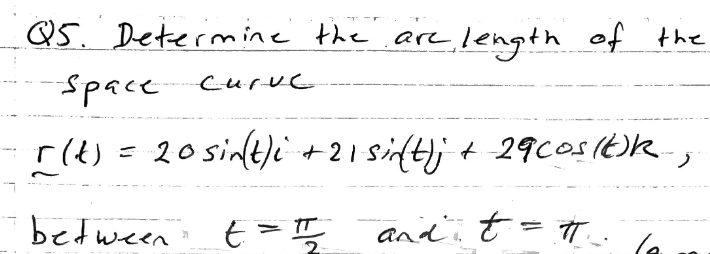 Q5. Determine the arc length of the
space curve
r(t) = 20 sin(t)i + 21 sin(t)j + 29cos(t)k,
between t = π/2 and t = π.